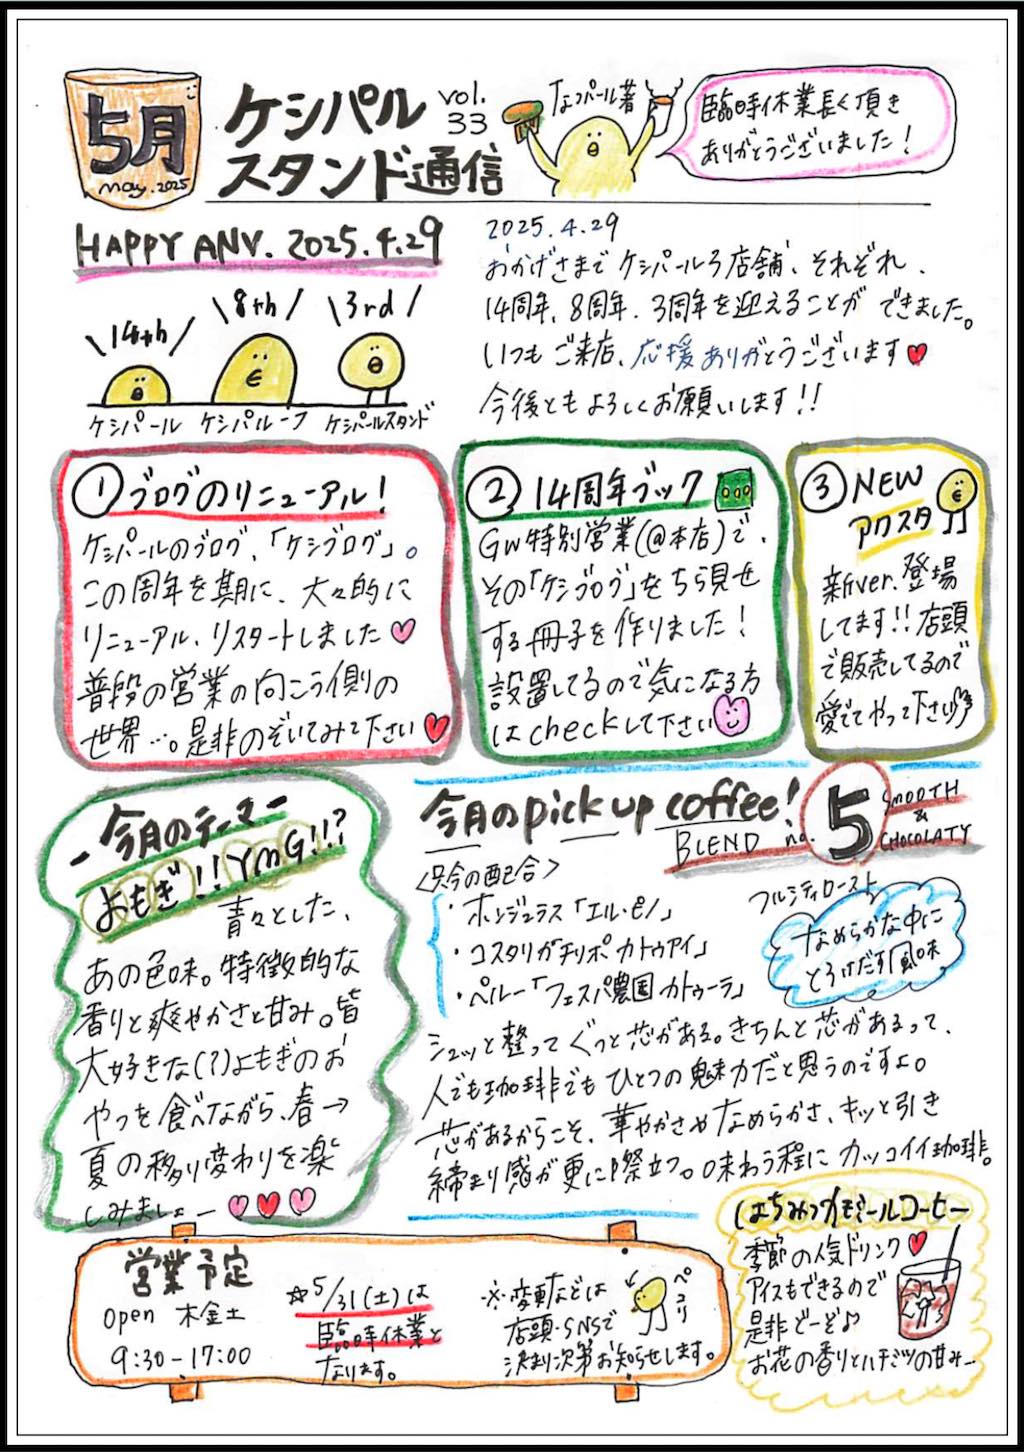 5月
may.2025
ケシパル
スタンド通信
vol.
33
なつパール着
臨時休業長く頂き
ありがとうございました!
HAPPY ANV. 2025.4.29
\14th/
\8th/
\3rd/
ケシパール
ケシパルーフ
ケシパールスタンド
2025.4.29
おかげさまでケシパール3店舗、それぞれ、
14周年、8周年、3周年を迎えることができました。
いつもご来店、応援ありがとうございます
今後ともよろしくお願いします!!
①ブログのリニューアル!
ケシパールのブログ、「ケシブログ」。
この周年を期に、大々的に
リニューアル、リスタートしました
普段の営業の向こう側の
世界…。是非のぞいてみて下さい
②14周年ブック
GW特別営業(@本店)で、
その「ケシブログ」をちら見せ
する冊子を作りました!
設置してるので気になる方
はcheckして下さい
③NEW
アクスタ
新ver.登場
してます!!店頭
で販売してるので
愛でてやって下さい
今月のテーマ
よもぎ!!YMG!!?
青々とした、
あの色味。特徴的な
香りと爽やかさと甘み。皆
大好きな(?)よもぎのお
やつを食べながら、春→
夏の移り変わりを楽
しみましょー
今月のpick up coffee!
BLEND no.5
SMOOTH
&
CHOCOLATY
<只今の配合>
・ホンジュラス「エル・ピノ」
・コスタリカ「チリポ カトゥアイ」
・ペルー「フェスパ農園 カトゥーラ」
フルシティロースト
なめらかな中に
とろけだす風味
シュッと整ってぐっと芯がある。きちんと芯があるって、
人でも珈琲でもひとつの魅力だと思うのですよ。
芯があるからこそ、華やかさやなめらかさ、キッと引き
締まり感が更に際立つ。味わう程にカッコイイ珈琲。
営業予定
open 木金土
9:30-17:00
☆5/31(土)は
臨時休業と
なります。
※変更などは
店頭・SNSで
決まり次第お知らせします。
ペコリ
はちみつカモミールコーヒー
季節の人気ドリンク
アイスもできるので
是非どーぞ♪
お花の香りとハチミツの甘みー